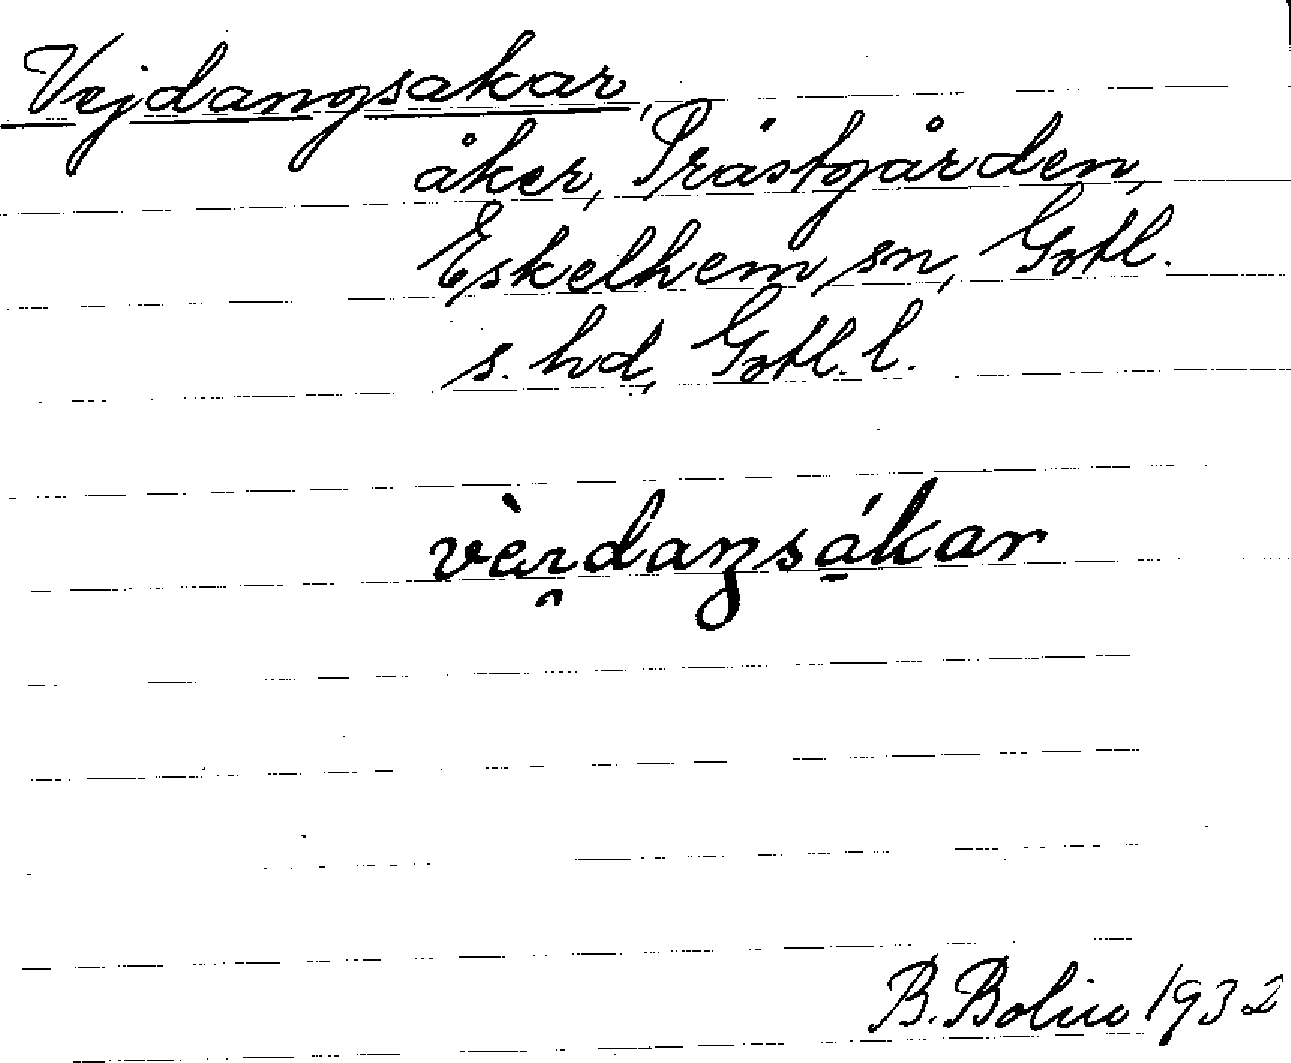 Vejdangsakar,
åker, Prästgården,
Eskelhem sn, Gotl.
s. hd, Gotl. l.
B. Bolin 1932